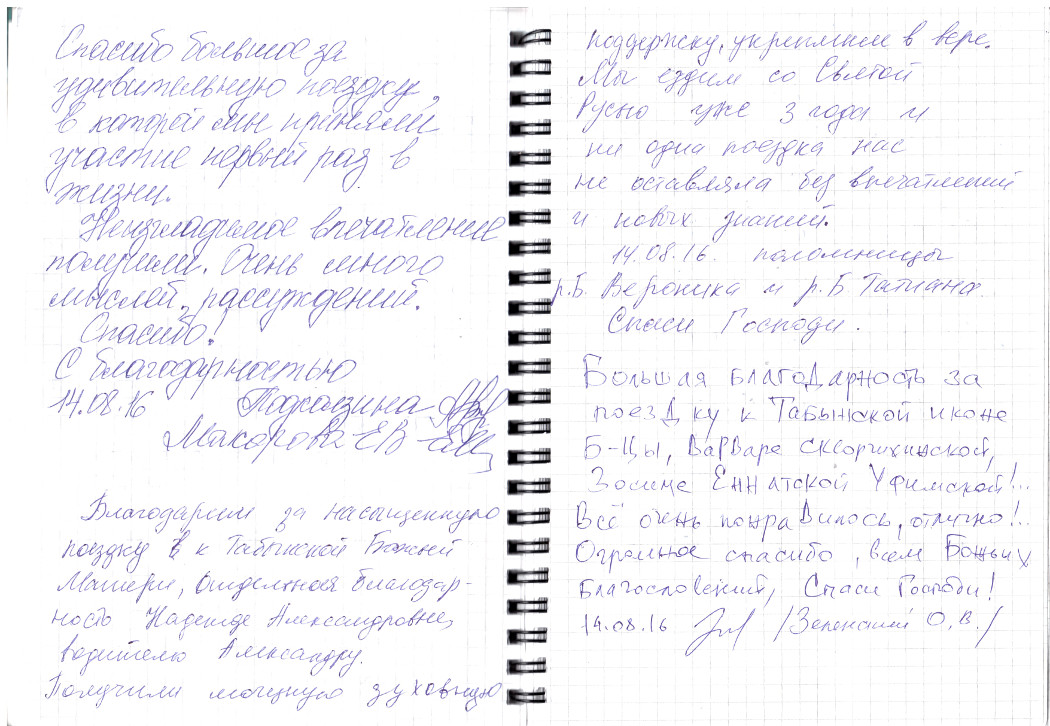 Спасибо большое за
удивительную поездку,
в которой мы приняли
участие первый раз в
жизни.
Неизгладимое впечатление
получили. Очень много
мыслей, рассуждений.
Спасибо!
С благодарностью
14.08.16
Макарова ЕВ
Благодарим за насыщенную
поездку к Табынской Божией
Матери, отдельная благодар-
ность Надежде Александровне,
водителю Александру.
Получили мощную духовную
поддержку, укрепление в вере.
Мы ездим со Святой
Русью уже 3 года и
ни одна поездка нас
не оставляла без впечатлений
и новых знаний.
14.08.16. паломницы
р.Б. Вероника и р.Б Татиана
Спаси Господи.
Большая благодарность за
поездку к Табынской иконе
Б-Цы, Варваре Скворчихинской,
Зосиме Еннатской Уфимской!..
Всё очень понравилось, отлично!..
Огромное спасибо, всем Божьих
благословений, Спаси Господи!
14.08.16 /Зеленский О.В./